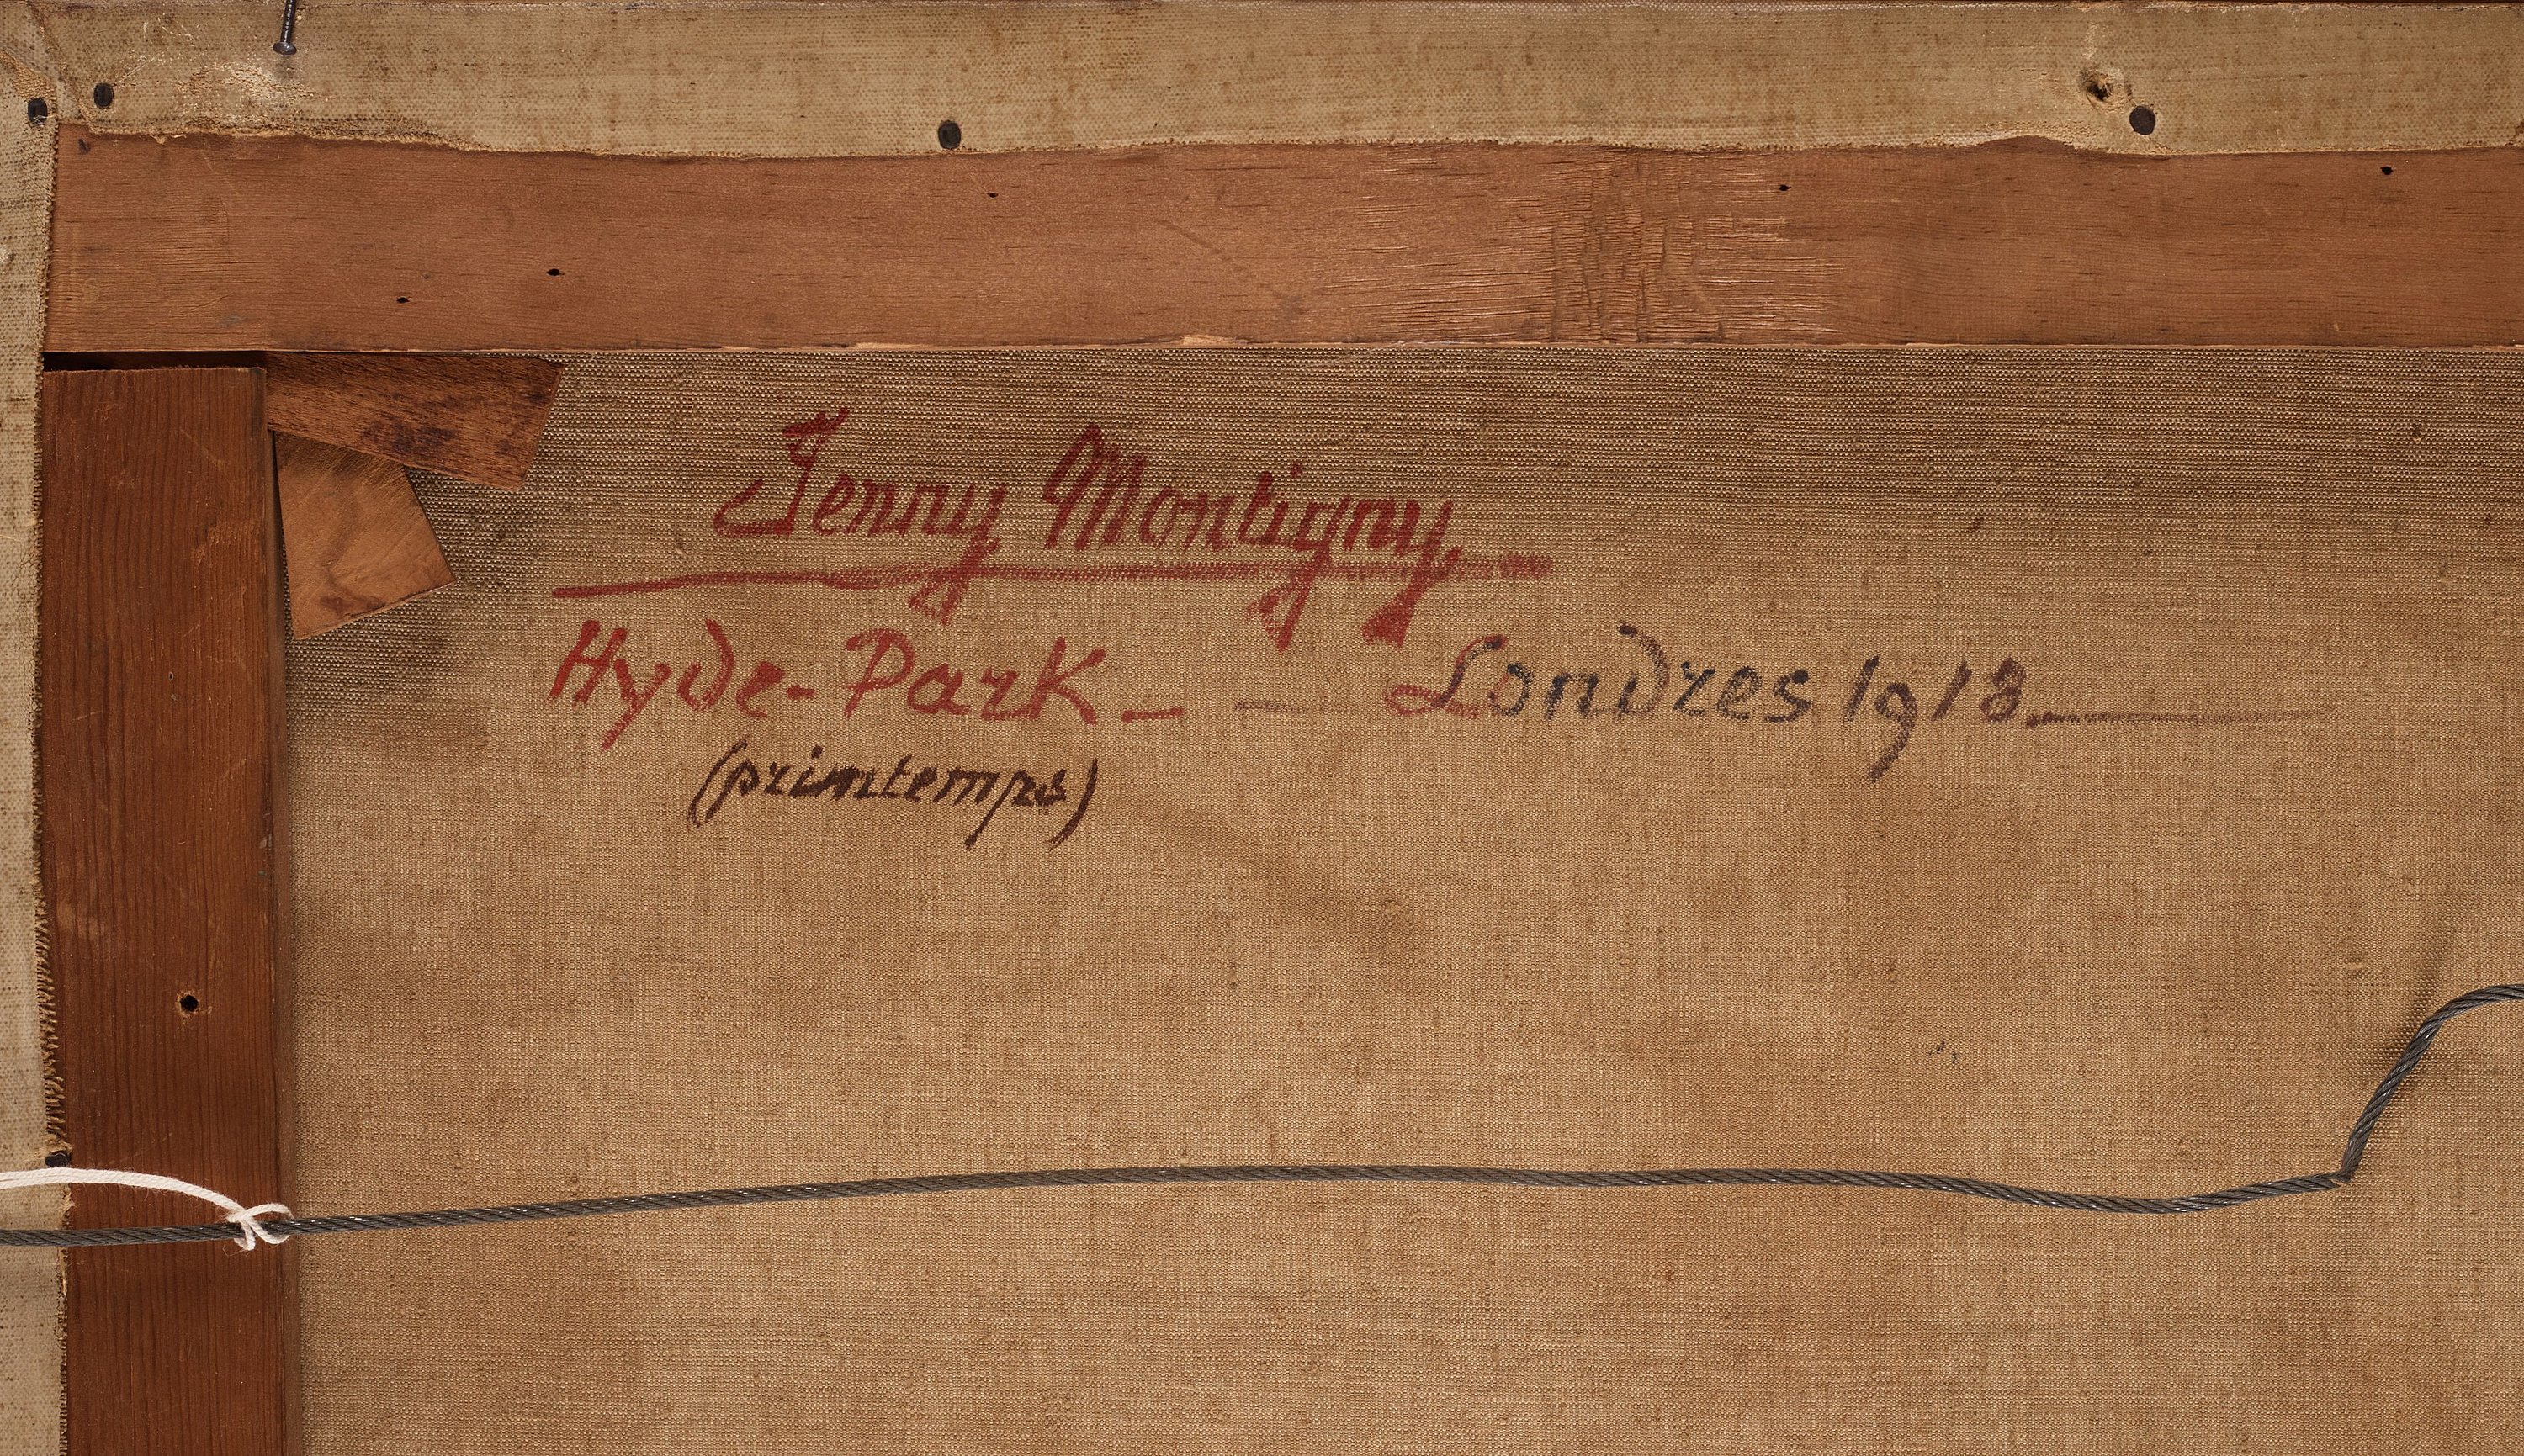 Jenny Montigny
Hyde-Park _ — Londres 1918.
(printemps)